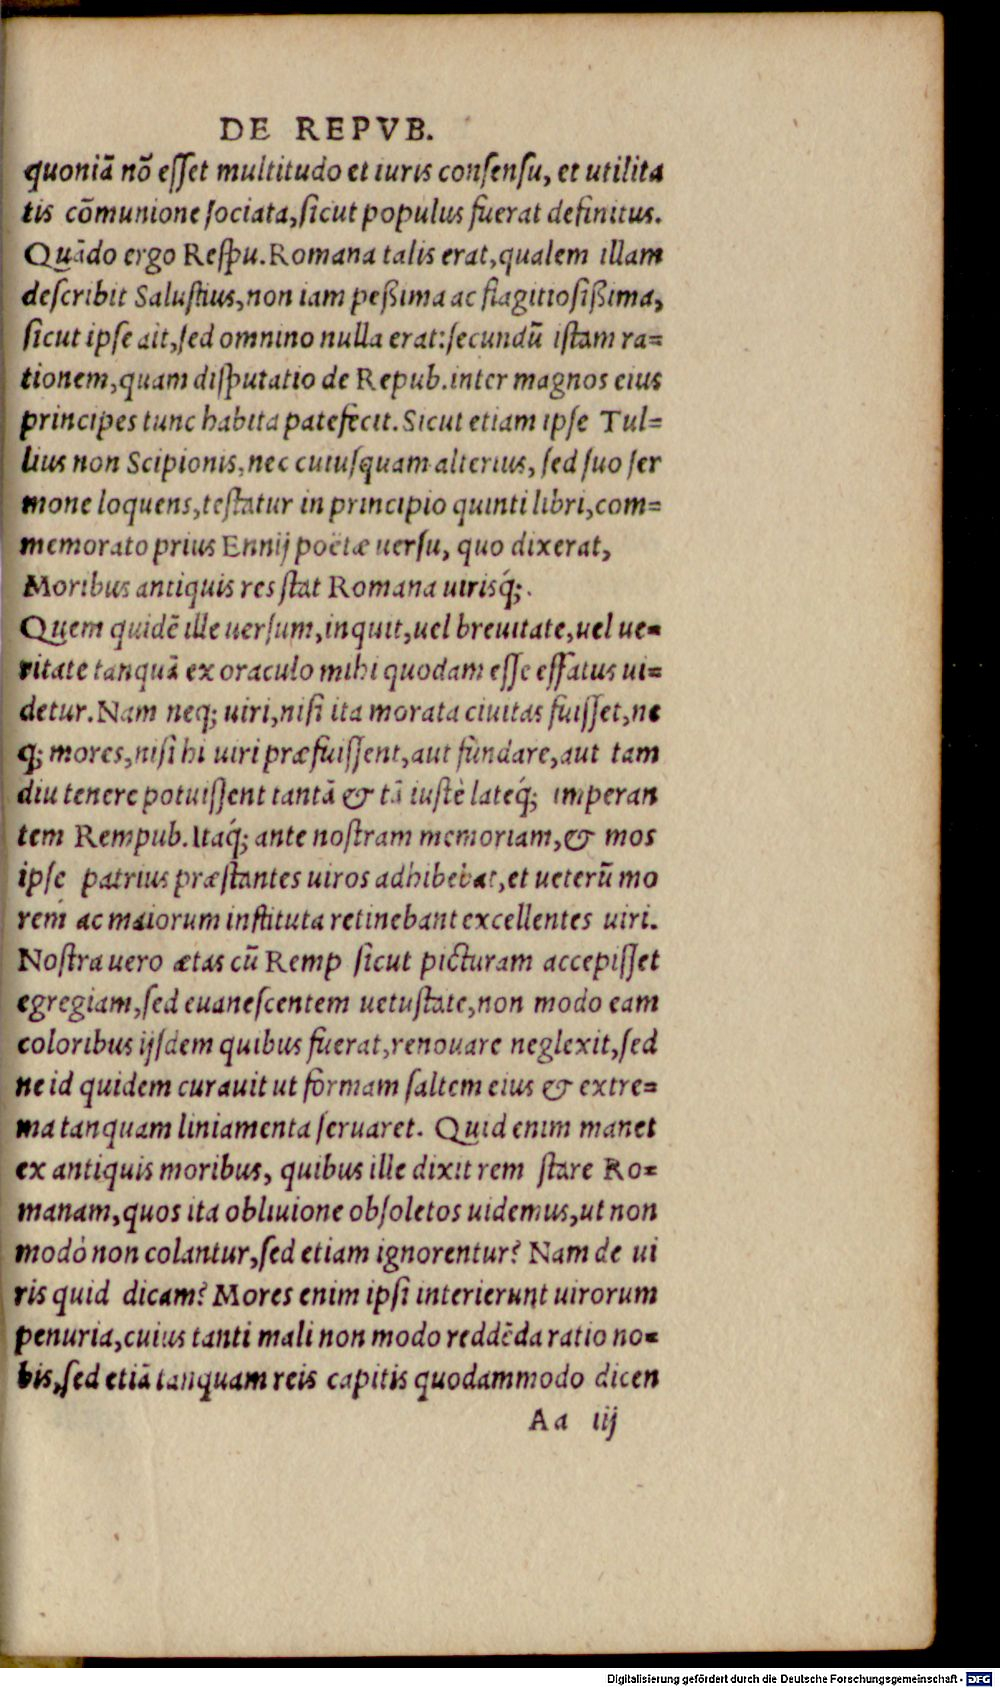 DE REPVB.
quoniã nõ eſſet multitudo et iuris conſenſu, et utilita
tis cõmunione ſociata, ſicut populus fuerat definitus.
Quãdo ergo Reſpu. Romana talis erat, qualem illam
deſcribit Saluſtius, non iam peßima ac flagitioſißima,
ſicut ipſe ait, ſed omnino nulla erat: ſecundũ iſtam ra=
tionem, quam diſputatio de Repub. inter magnos eius
principes tunc habita patefecit. Sicut etiam ipſe Tul=
lius non Scipionis, nec cuiuſquam alterius, ſed ſuo ſer
mone loquens, teſtatur in principio quinti libri, com=
memorato prius Ennij poëtæ uerſu, quo dixerat,
Moribus antiquis res ſtat Romana uirisq́;.
Quem quidẽ ille uerſum, inquit, uel breuitate, uel ue=
ritate tanquã ex oraculo mihi quodam eſſe effatus ui=
detur. Nam neq; uiri, niſi ita morata ciuitas fuiſſet, ne
q; mores, niſi hi uiri præfuiſſent, aut fundare, aut tam
diu tenere potuiſſent tantã & tã iuſtè lateq́; imperan
tem Rempub. Itaq́; ante noſtram memoriam, & mos
ipſe patrius præſtantes uiros adhibebat, et ueterũ mo
rem ac maiorum inſtituta retinebant excellentes uiri.
Noſtra uero ætas cũ Remp ſicut picturam accepiſſet
egregiam, ſed euaneſcentem uetuſtate, non modo eam
coloribus ijſdem quibus fuerat, renouare neglexit, ſed
ne id quidem curauit ut formam ſaltem eius & extre=
ma tanquam liniamenta ſeruaret. Quid enim manet
ex antiquis moribus, quibus ille dixit rem ſtare Ro=
manam, quos ita obliuione obſoletos uidemus, ut non
modò non colantur, ſed etiam ignorentur? Nam de ui
ris quid dicam? Mores enim ipſi interierunt uirorum
penuria, cuius tanti mali non modo reddẽda ratio no=
bis, ſed etiã tanquam reis capitis quodammodo dicen
Aa iij
Digitalisierung gefördert durch die Deutsche Forschungsgemeinschaft - DFG